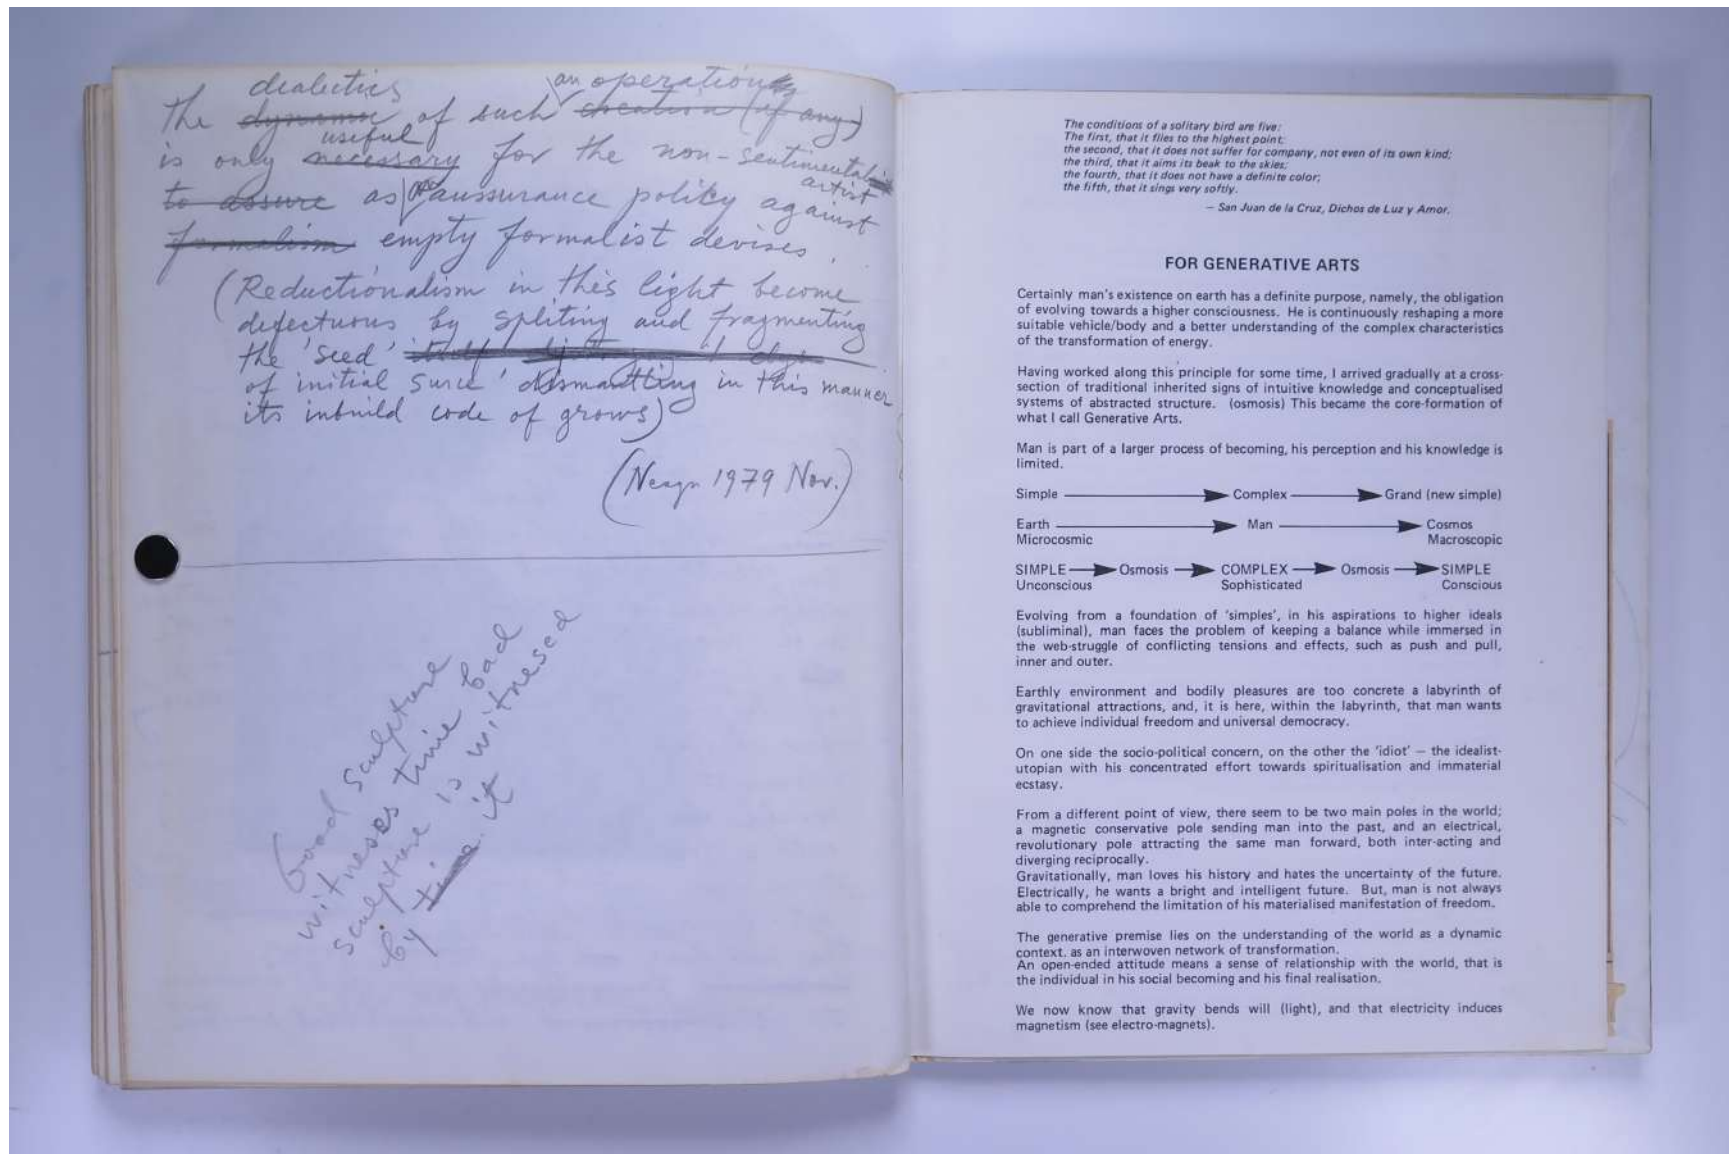 The dialectics of such an operation
is only useful for the non-sentimental
artist
as reaussurance policy against
empty formalist devises.
(Reductionalism in this light become
defectuous by spliting and fragmenting
the 'seed'
of initial surce 'dismantling in this manner
its inbuild code of grows)
(Neagu 1979 Nov.)
Good sculpture
witnesses time bad
sculpture is witnesed
by it
The conditions of a solitary bird are five:
The first, that it flies to the highest point;
the second, that it does not suffer for company, not even of its own kind;
the third, that it aims its beak to the skies;
the fourth, that it does not have a definite color;
the fifth, that it sings very softly.
– San Juan de la Cruz, Dichos de Luz y Amor.
FOR GENERATIVE ARTS
Certainly man's existence on earth has a definite purpose, namely, the obligation
of evolving towards a higher consciousness. He is continuously reshaping a more
suitable vehicle/body and a better understanding of the complex characteristics
of the transformation of energy.
Having worked along this principle for some time, I arrived gradually at a cross-
section of traditional inherited signs of intuitive knowledge and conceptualised
systems of abstracted structure. (osmosis) This became the core-formation of
what I call Generative Arts.
Man is part of a larger process of becoming, his perception and his knowledge is
limited.
Simple Complex Grand (new simple)
Earth Man Cosmos
Microcosmic Macroscopic
SIMPLE Osmosis COMPLEX Osmosis SIMPLE
Unconscious Sophisticated Conscious
Evolving from a foundation of 'simples', in his aspirations to higher ideals
(subliminal), man faces the problem of keeping a balance while immersed in
the web-struggle of conflicting tensions and effects, such as push and pull,
inner and outer.
Earthly environment and bodily pleasures are too concrete a labyrinth of
gravitational attractions, and, it is here, within the labyrinth, that man wants
to achieve individual freedom and universal democracy.
On one side the socio-political concern, on the other the 'idiot' – the idealist-
utopian with his concentrated effort towards spiritualisation and immaterial
ecstasy.
From a different point of view, there seem to be two main poles in the world;
a magnetic conservative pole sending man into the past, and an electrical,
revolutionary pole attracting the same man forward, both inter-acting and
diverging reciprocally.
Gravitationally, man loves his history and hates the uncertainty of the future.
Electrically, he wants a bright and intelligent future. But, man is not always
able to comprehend the limitation of his materialised manifestation of freedom.
The generative premise lies on the understanding of the world as a dynamic
context. as an interwoven network of transformation.
An open-ended attitude means a sense of relationship with the world, that is
the individual in his social becoming and his final realisation.
We now know that gravity bends will (light), and that electricity induces
magnetism (see electro-magnets).